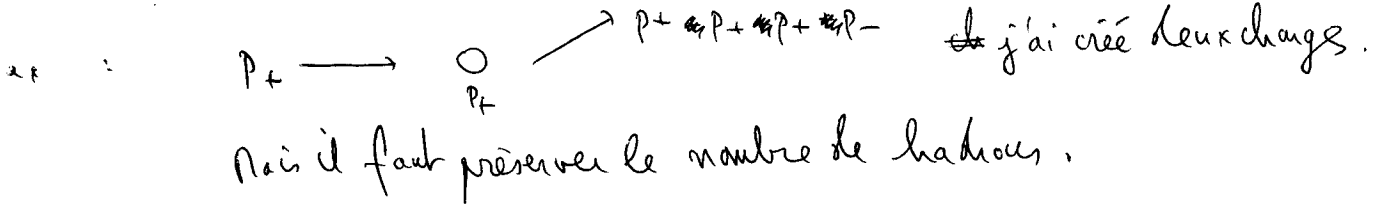 ex : P+ → O P+ → P+ P+ P+ P- j'ai créé deux charges.
Mais il faut préserver le nombre de hadrons.